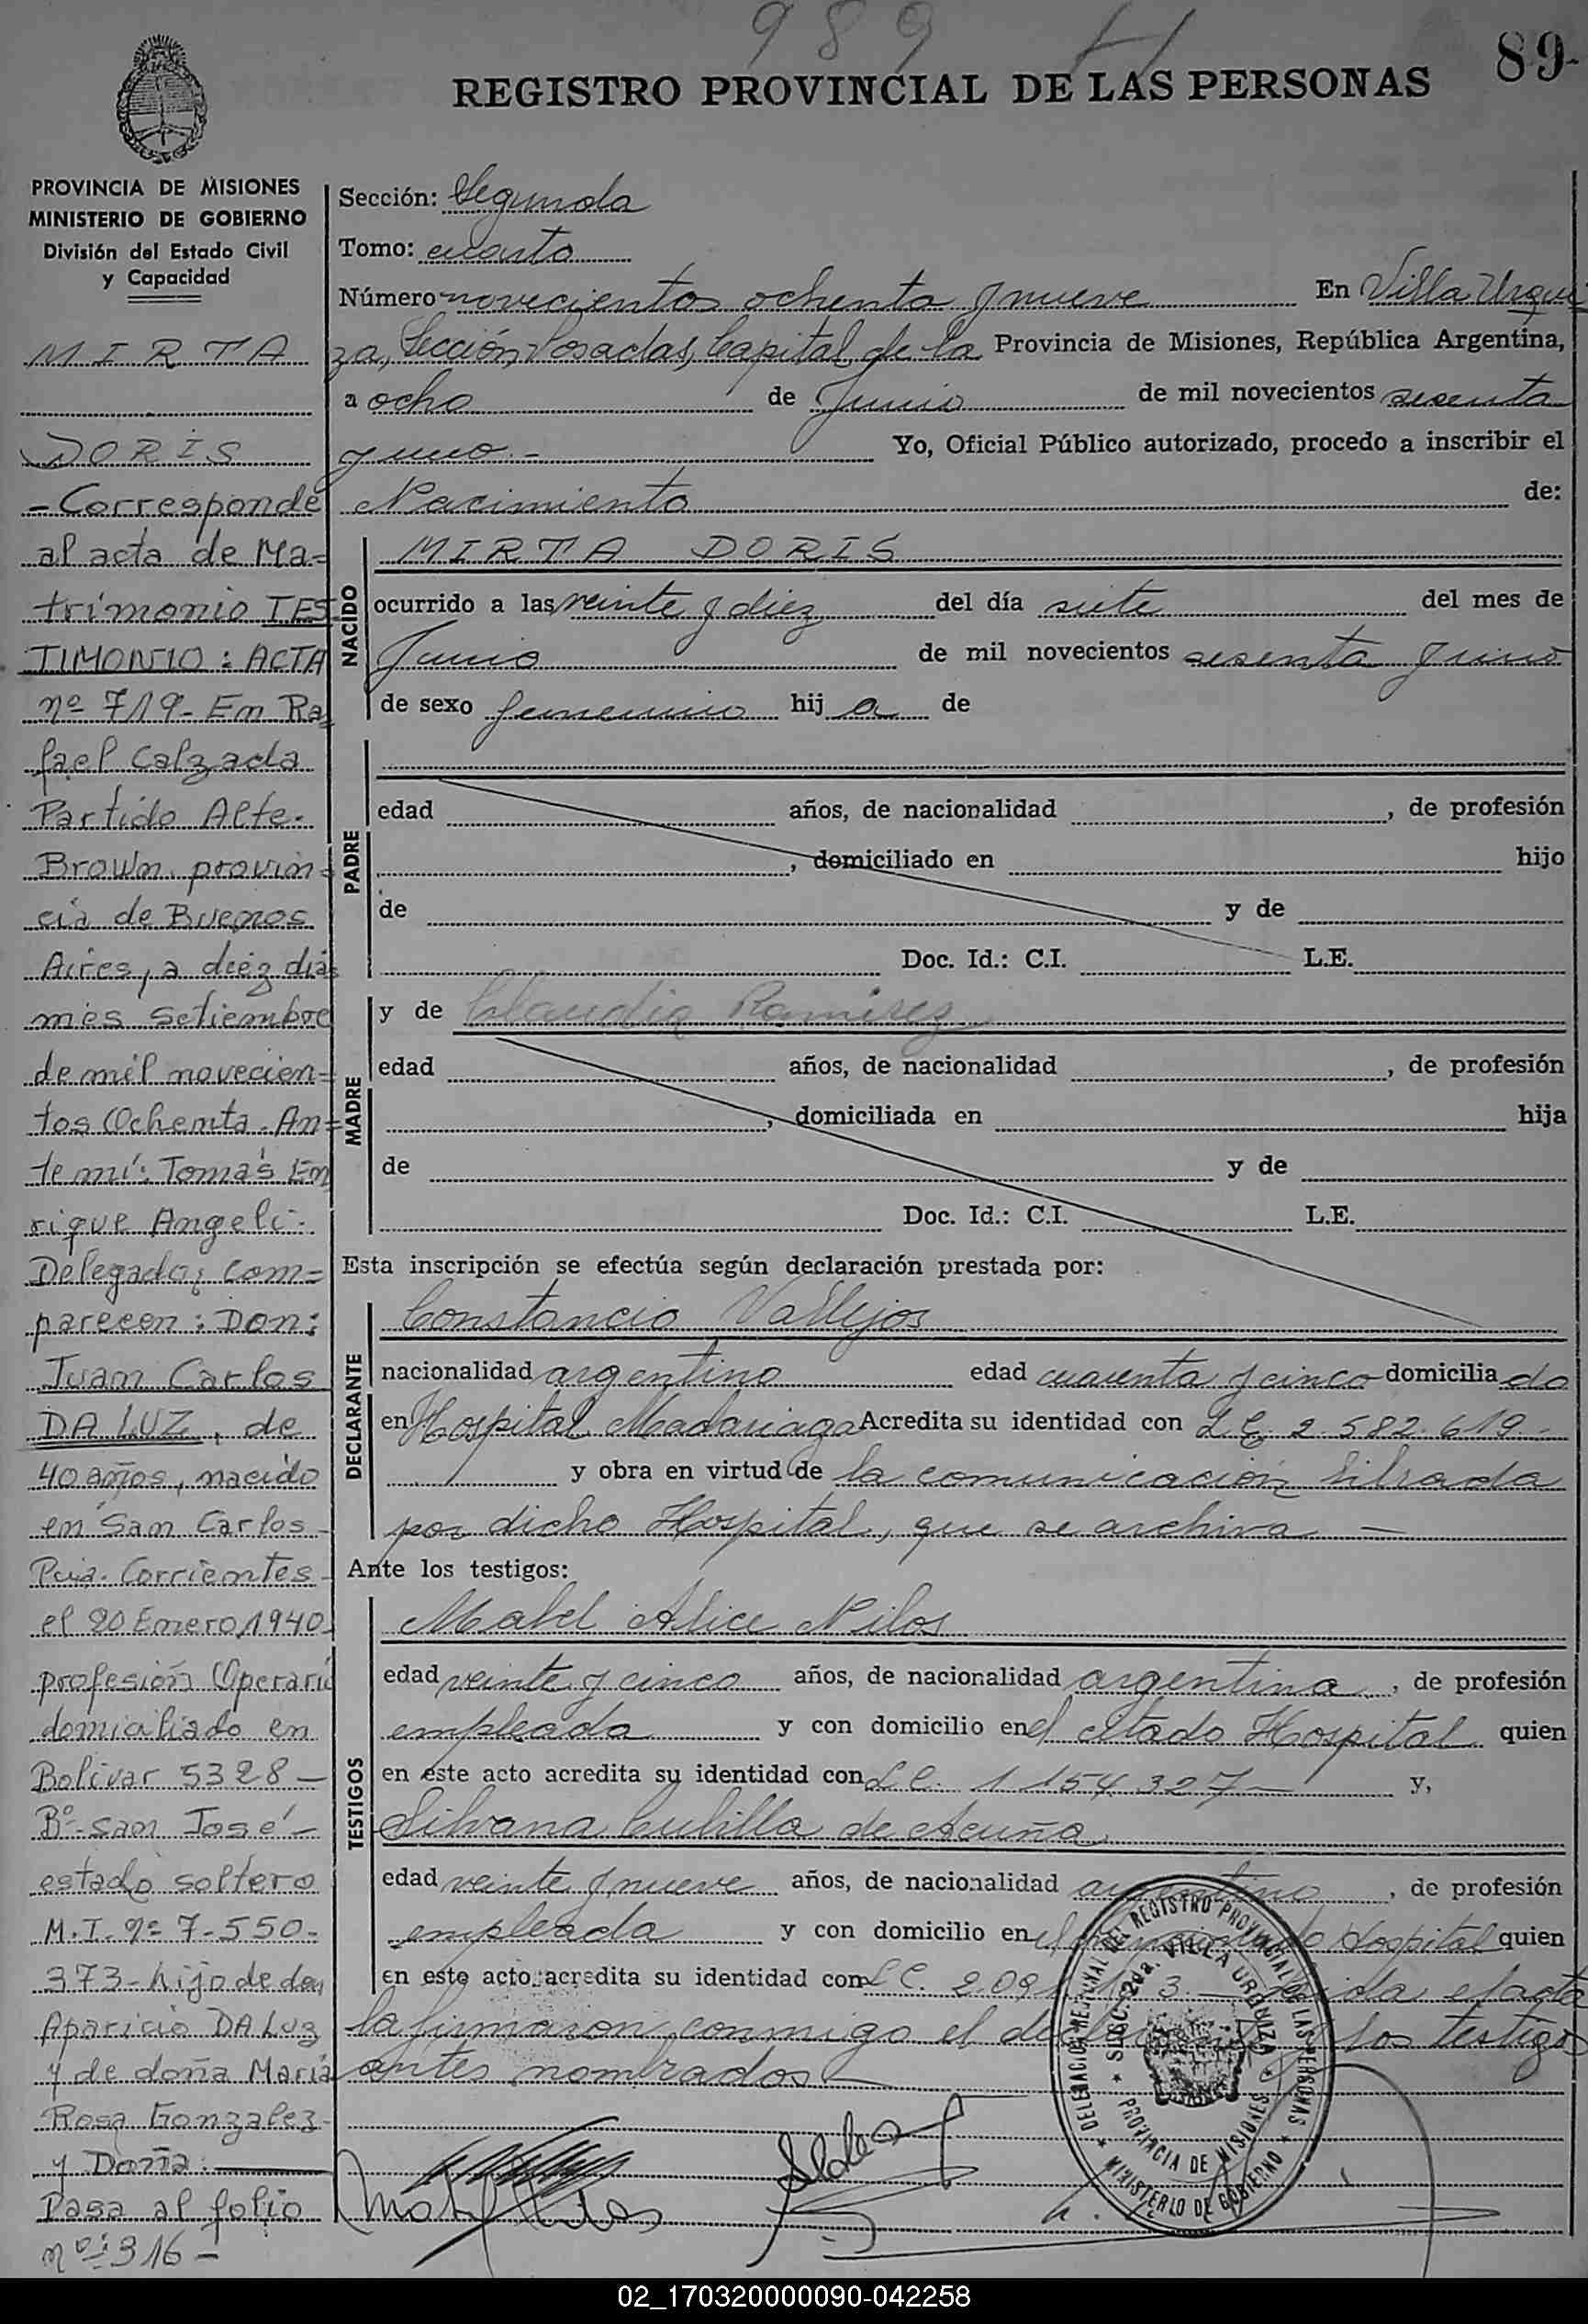 989
89-
REGISTRO PROVINCIAL DE LAS PERSONAS
PROVINCIA DE MISIONES
MINISTERIO DE GOBIERNO
División del Estado Civil
y Capacidad
MIRTA
DORIS
- Corresponde
al acta de Ma=
trimonio TES
TIMONIO: ACTA
nº 719- En Ra=
fael Calzada
Partido Alte.
Brown. provin=
cia de Buenos
Aires, a diez dias
mes Setiembre
de mil novecien=
tos Ochenta. An=
te mí: Tomás En
rique Angeli-
Delegado; com=
parecen: Don:
Juan Carlos
DA LUZ, de
40 años, nacido
en San Carlos-
Pcia. Corrientes-
el 20 Enero 1940-
profesión Operario
domiciliado en
Bolivar 5328-
Bº- San José-
estado soltero
M.I. nº 7-550-
373- hijo de don
Aparicio DA LUZ
y de doña Maria
Rosa Gonzalez-
y Doña:
Pasa al folio
nº: 316-
Sección: Segunda
Tomo: cuarto
Número novecientos ochenta y nueve En Villa Urqui
za, Sección Posadas, Capital de la Provincia de Misiones, República Argentina,
a ocho de Junio de mil novecientos sesenta
y uno.- Yo, Oficial Público autorizado, procedo a inscribir el
Nacimiento de:
NACIDO
MIRTA DORIS
ocurrido a las veinte y diez del día siete del mes de
Junio de mil novecientos sesenta y uno
de sexo femenino hij a de
PADRE
edad años, de nacionalidad , de profesión
, domiciliado en hijo
de y de
Doc. Id.: C.I. L.E.
MADRE
y de Claudia Ramirez
edad años, de nacionalidad , de profesión
, domiciliada en hija
de y de
Doc. Id.: C.I. L.E.
Esta inscripción se efectúa según declaración prestada por:
DECLARANTE
Constancio Vallejos
nacionalidad argentino edad cuarenta y cinco domicilia do
en Hospital Madariaga Acredita su identidad con L.E. 2.582.619.-
y obra en virtud de la comunicación librada
por dicho Hospital, que se archiva -
Ante los testigos:
TESTIGOS
Mabel Alice Nilos
edad veinte y cinco años, de nacionalidad argentina, de profesión
empleada y con domicilio en el citado Hospital quien
en este acto acredita su identidad con L.C. 1.154.327- y,
Silvana Cubilla de Acuña
edad veinte y nueve años, de nacionalidad argentina, de profesión
empleada y con domicilio en el Hospital quien
en este acto acredita su identidad con L.C. el acta
la firmaron conmigo el los testigos
antes nombrados-
DELEGACION REGIONAL DEL REGISTRO PROVINCIAL DE LAS PERSONAS
MINISTERIO DE GOBIERNO
SECC. 2da. VILLA URQUIZA
PROVINCIA DE MISIONES
02_170320000090-042258